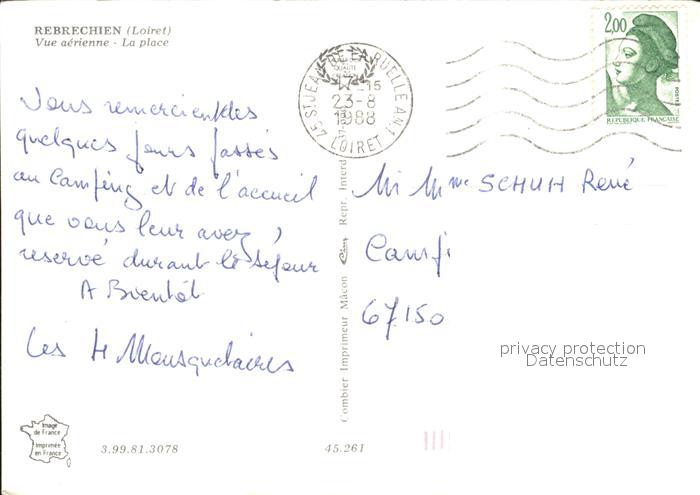 REBRECHIEN (Loiret)
Vue aérienne - La place
Vous remercient des
quelques jours passés
au Camping et de l'accueil
que vous leur avez,
reservé durant le sejour
A Bientôt
Les 4 Mousquetaires
45 ST JEAN DE LA RUELLE AN.1
LOIRET
15
23-8
1988
2,00
POSTES
REPUBLIQUE FRANÇAISE
Mr Mme SCHUH René
67150
privacy protection
Datenschutz
Combier Imprimeur Mâcon Cim Repr. Interd
Image
de France
Imprimée
en France
3.99.81.3078
45.261